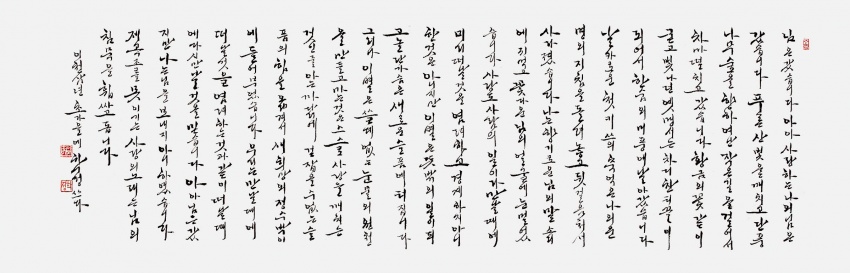 님은 갔습니다 아아 사랑하는 나의 님은
갔습니다 푸른 산빛을 깨치고 단풍
나무숲을 향하여 난 작은 길을 걸어서
차마 떨치고 갔습니다 황금의 꽃 같이
굳고 빛나던 옛 맹서는 차디찬 티끌이
되어서 한숨의 미풍에 날아갔습니다
날카로운 첫 키스의 추억은 나의 운
명의 지침을 돌려 놓고 뒷걸음쳐서
사라졌습니다 나는 향기로운 님의 말소리
에 귀먹고 꽃다운 님의 얼굴에 눈멀었
습니다 사랑도 사람의 일이라 만날 때에
미리 떠날 것을 염려하고 경계하지 아니
한 것은 아니지만 이별은 뜻밖의 일이 되
고 놀란 가슴은 새로운 슬픔에 터집니다
그러나 이별을 쓸데없는 눈물의 원천
을 만들고 마는 것은 스스로 사랑을 깨치는
것인 줄 아는 까닭에 걷잡을 수 없는 슬
픔의 힘을 옮겨서 새 희망의 정수박이
에 들어부었습니다 우리는 만날 때에
떠날 것을 염려하는 것과 같이 떠날 때
에 다시 만날 것을 믿습니다 아아 님은 갔
지만 나는 님을 보내지 아니하였습니다
제 곡조를 못 이기는 사랑의 노래는 님의
침묵을 휩싸고 돕니다
초가을에 쓰다